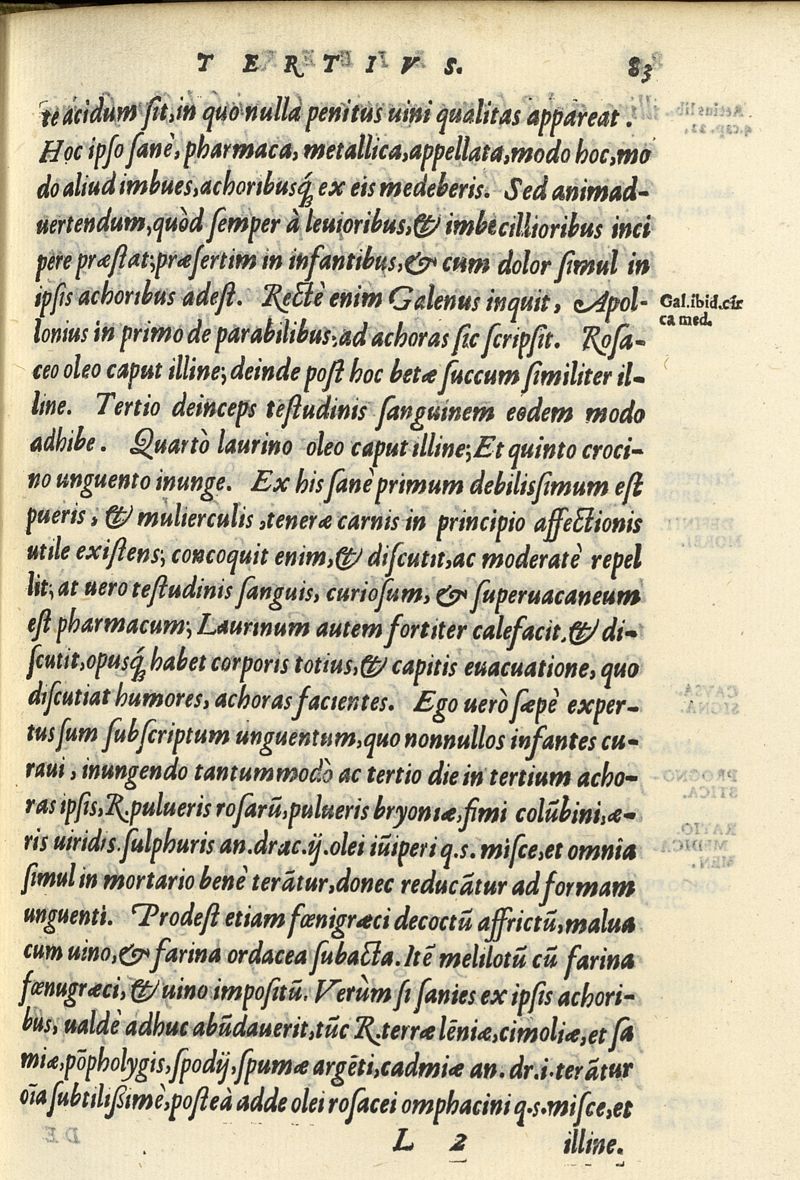 TERTIVS. 83
te acidum ſit, in quo nulla penitus uini qualitas appareat.
Hoc ipſo ſanè, pharmaca, metallica, appellata, modo hoc, mo
do aliud imbues, achoribusq́; ex eis medeberis. Sed animad-
uertendum, quòd ſemper à leuioribus, & imbecillioribus inci
pere præſtat; præſertim in infantibus, & cum dolor ſimul in
ipſis achoribus adeſt. Rectè enim Galenus inquit, Apol-
Gal. ibid. cir
ca med.
lonius in primo de parabilibus; ad achoras ſic ſcripſit. Roſa-
ceo oleo caput illine; deinde poſt hoc betæ ſuccum ſimiliter il-
line. Tertio deinceps teſtudinis ſanguinem eodem modo
adhibe. Quartò laurino oleo caput illine; Et quinto croci-
no unguento inunge. Ex his ſanè primum debiliſſimum eſt
pueris, & mulierculis, teneræ carnis in principio affectionis
utile exiſtens; concoquit enim, & diſcutit, ac moderatè repel
lit; at uero teſtudinis ſanguis, curioſum, & ſuperuacaneum
eſt pharmacum; Laurinum autem fortiter calefacit, & di-
ſcutit, opusq́; habet corporis totius, & capitis euacuatione, quo
diſcutiat humores, achoras facientes. Ego uerò ſæpè exper-
tus ſum ſubſcriptum unguentum, quo nonnullos infantes cu-
raui, inungendo tantummodò ac tertio die in tertium acho-
ras ipſis, ℞. pulueris roſarū, pulueris bryoniæ, fimi colūbini, æ-
ris uiridis. ſulphuris an. drac. ij. olei iūiperi q. s. miſce, et omnia
ſimul in mortario benè terātur, donec reducātur ad formam
unguenti. Prodeſt etiam fœnigræci decoctū affrictū, malua
cum uino, & farina ordacea ſubacta. Itē melilotū cū farina
fœnugræci, & uino impoſitū. Verùm ſi ſanies ex ipſis achori-
bus, ualdè adhuc abūdauerit, tūc ℞. terræ lēniæ, cimoliæ, et ſa
miæ, pōpholygis, ſpodij, ſpumæ argēti, cadmiæ an. dr. i. terātur
oīa ſubtilißimè, poſteà adde olei roſacei omphacini q. s. miſce, et
L 2 illine.